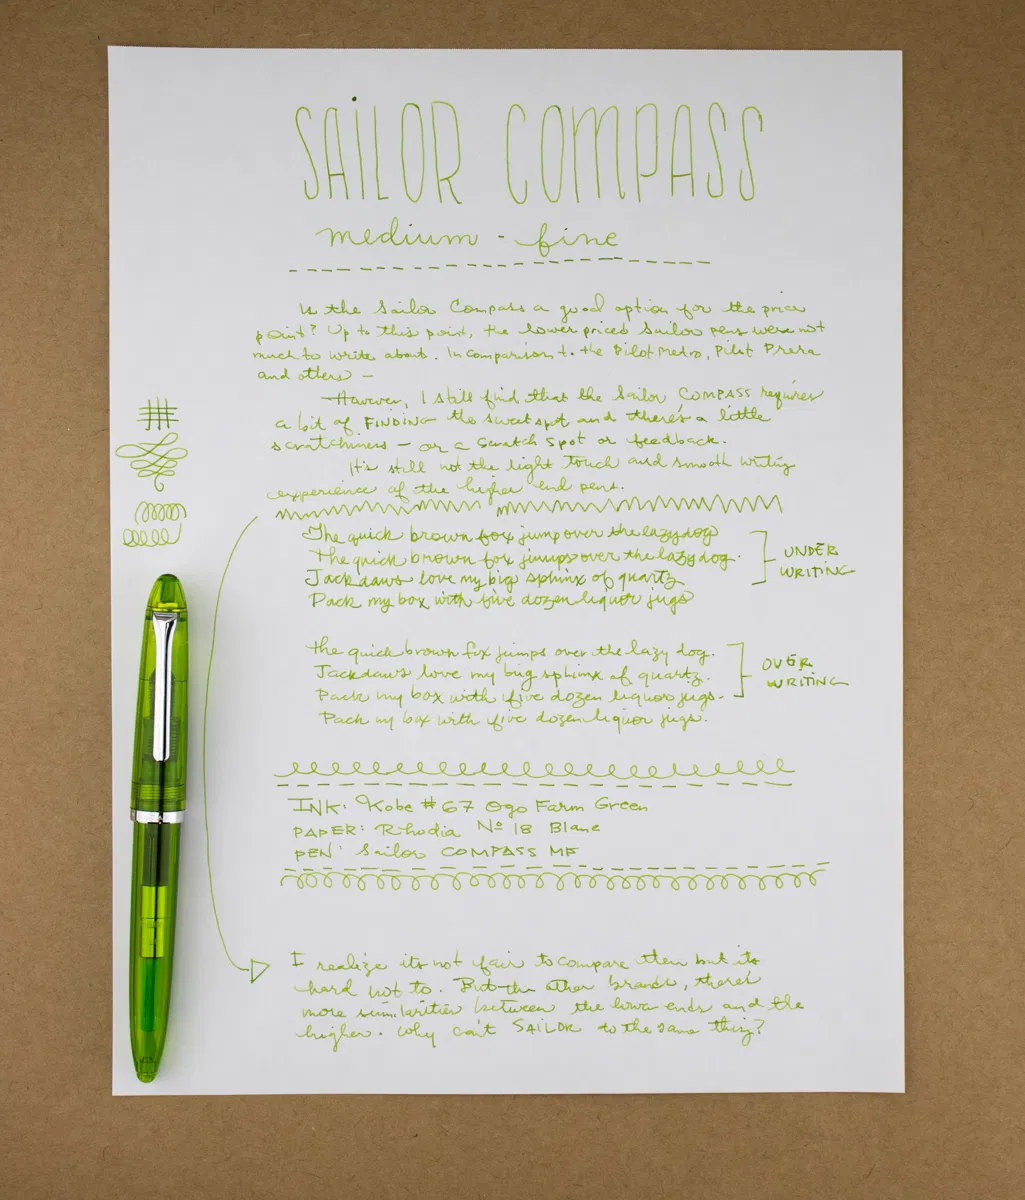 SAiLOR COMPASS
medium - fine
Is the Sailor Compass a good option for the price
point? Up to this point, the lower priced Sailor pens were not
much to write about. In comparison to the Pilot Metro, Pilot Prera
and others —
However, I still find that the Sailor COMPASS requires
a bit of FINDING the sweet spot and there's a little
scratchiness — or a scratch spot or feedback.
It's still not the light touch and smooth writing
experience of the higher end pens.
The quick brown fox jump over the lazy dog
The quick brown fox jumps over the lazy dog.
Jackdaws love my big sphinx of quartz
Pack my box with five dozen liquor jugs
UNDER
WRITING
the quick brown fox jumps over the lazy dog.
Jackdaws love my big sphinx of quartz.
Pack my box with five dozen liquor jugs.
Pack my box with five dozen liquor jugs.
OVER
WRITING
INK: Kobe #67 Ogo Farm Green
PAPER: Rhodia Nº 18 Blanc
PEN: Sailor COMPASS MF
I realize its not fair to compare them but its
hard not to. But the other brands, there's
more similarities between the low ends and the
higher. Why can't SAILOR to the same thing?